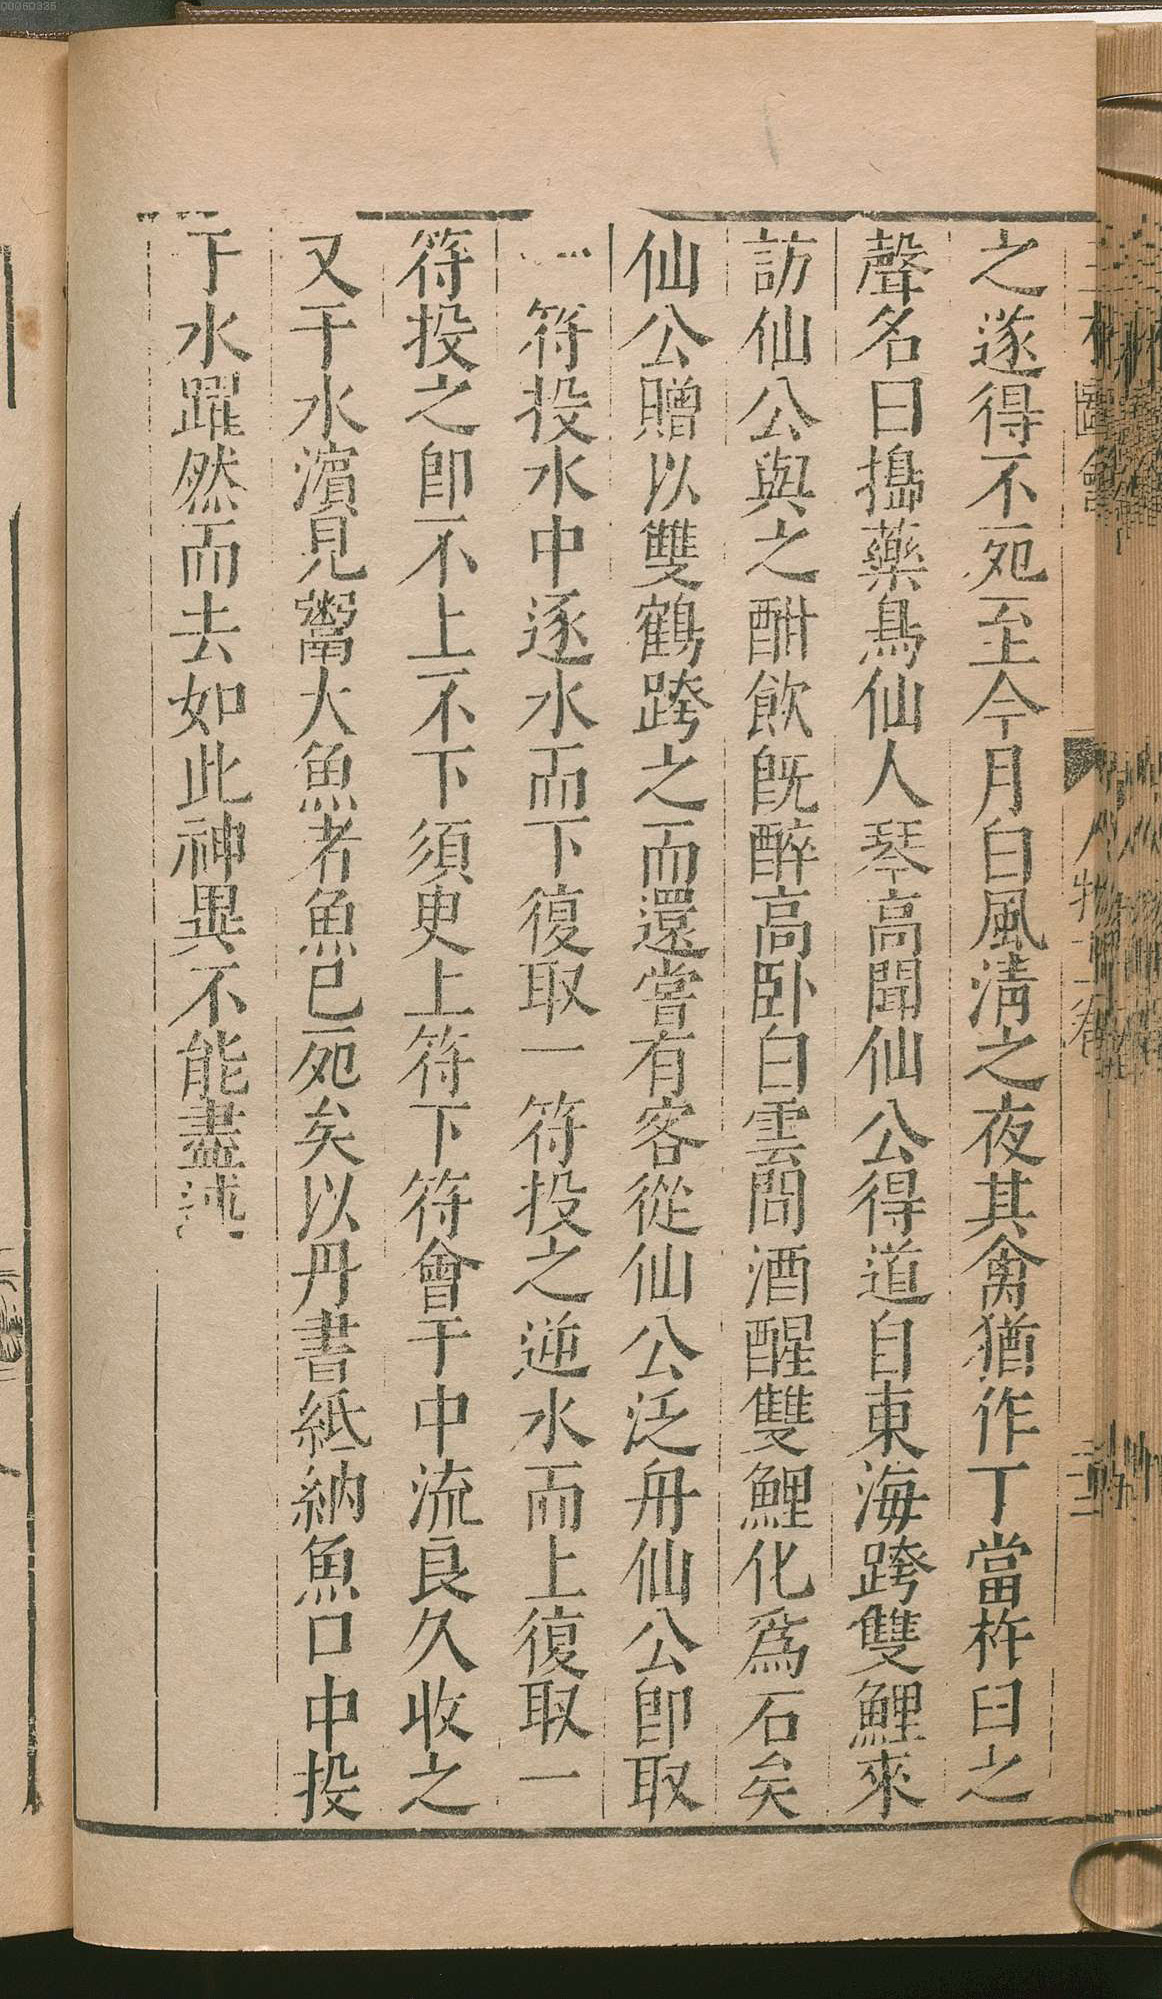 之遂得不死至今月白風淸之夜其禽猶作丁當杵臼之
聲名曰搗藥鳥仙人琴高聞仙公得道自東海跨雙鯉來
訪仙公與之酣飮旣醉高卧白雲間酒醒雙鯉化爲石矣
仙公贈以雙鶴跨之而還嘗有客從仙公泛舟仙公卽取
一符投水中逐水而下復取一符投之逆水而上復取一
符投之卽不上不下須臾上符下符會于中流良久收之
又于水濵見鬻大魚者魚已死矣以丹書紙納魚口中投
于水躍然而去如此神異不能盡述
圖會
人物
00060335